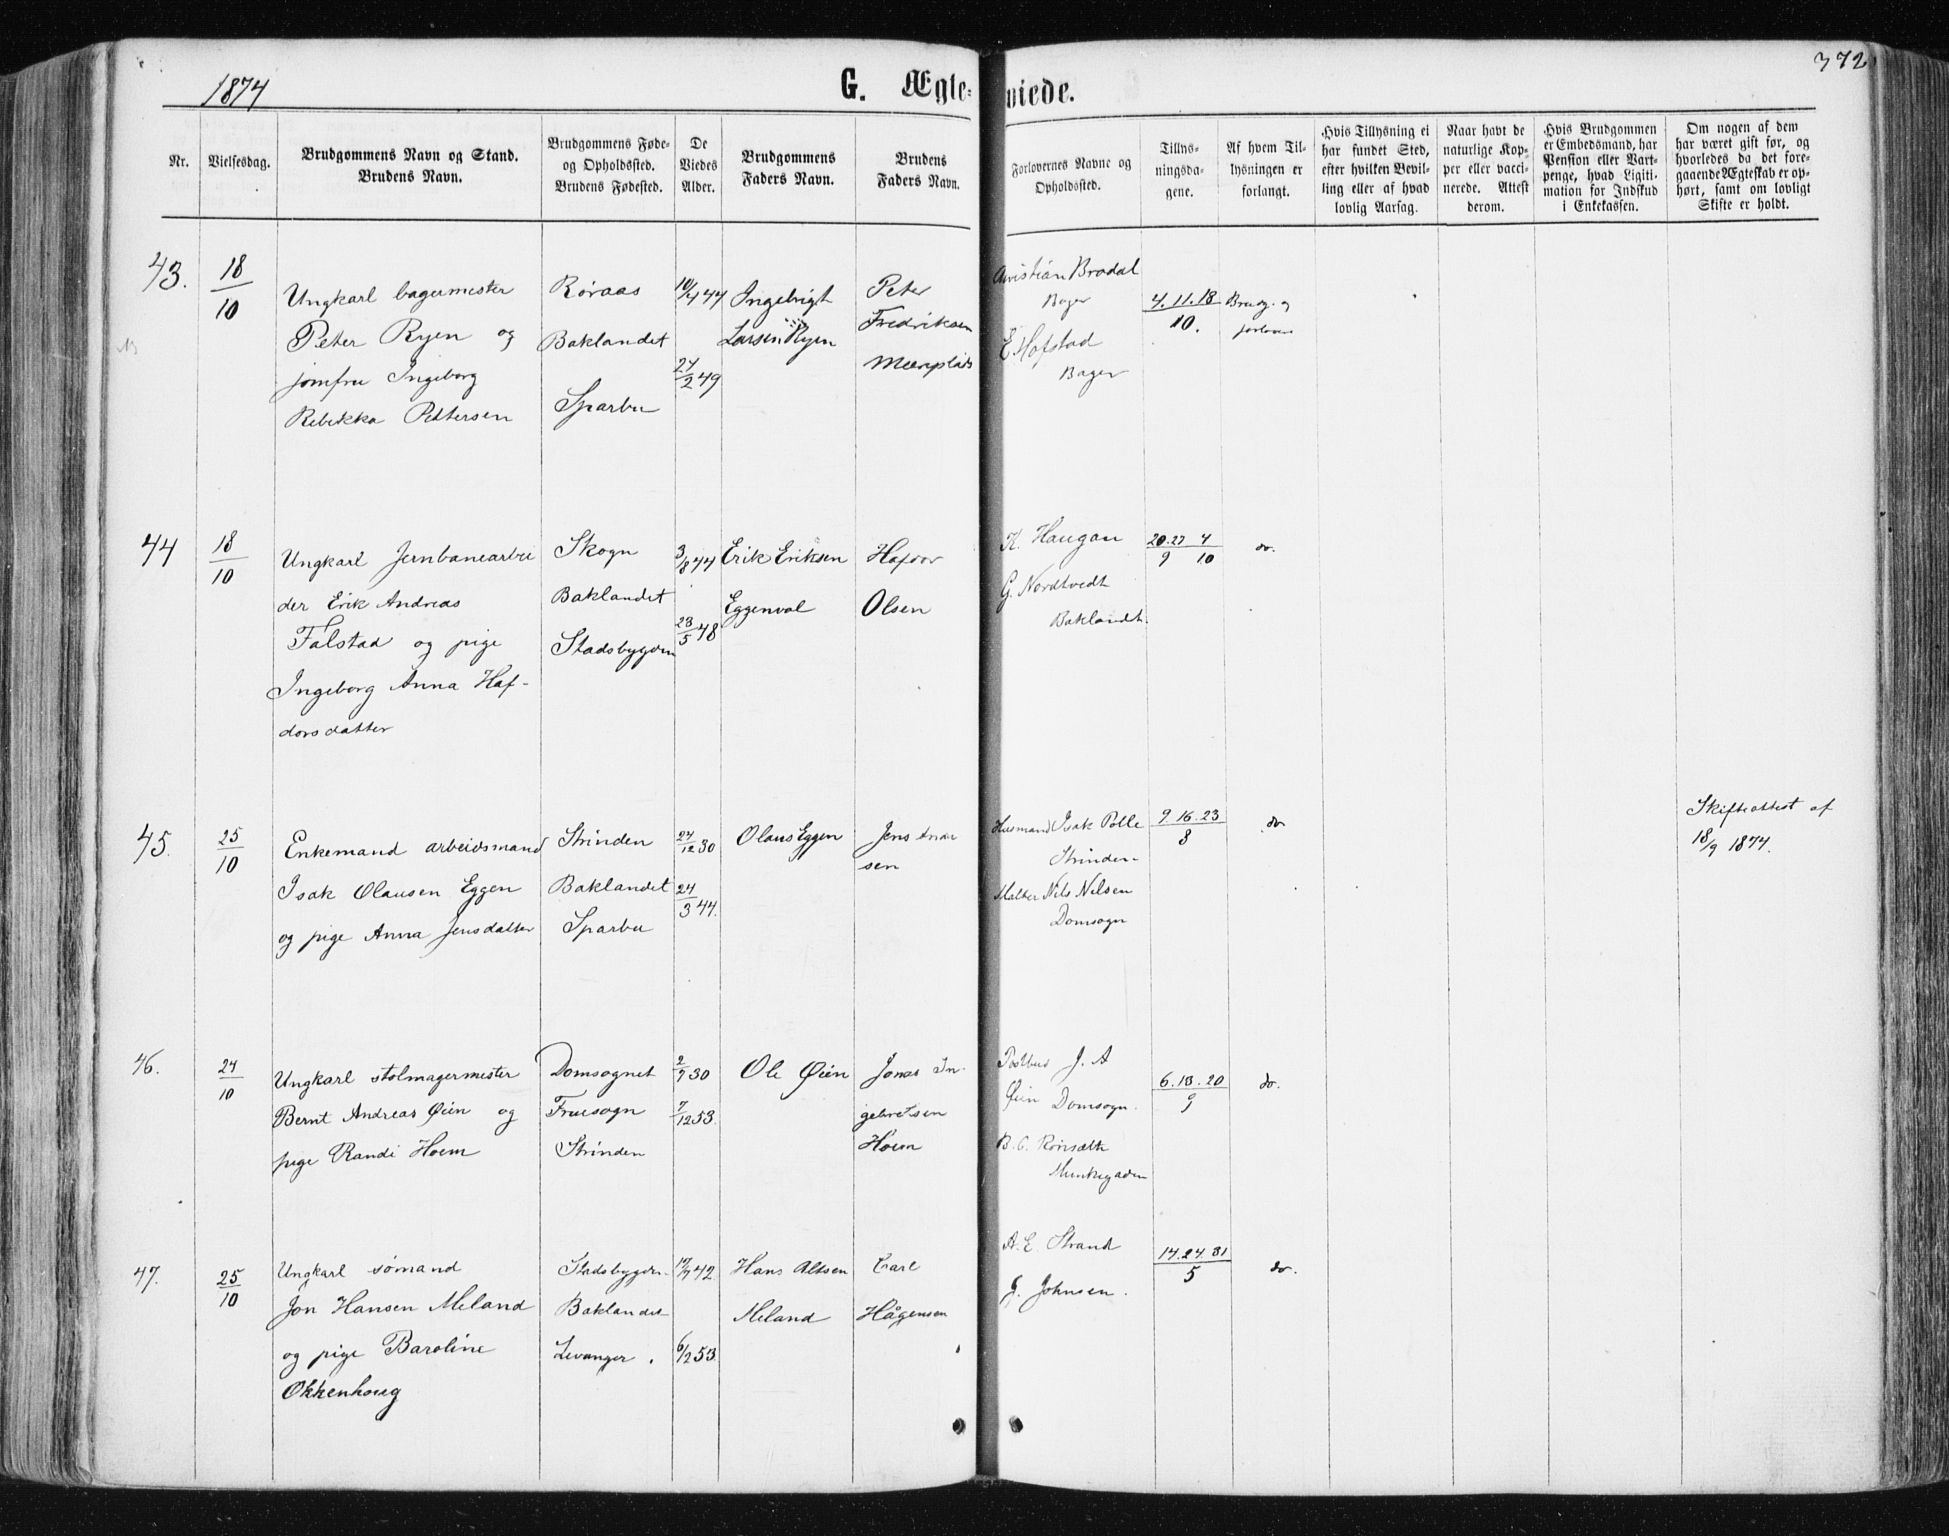 1874
G. Ægte-
viede.
372
Nr.
Vielsesdag.
Brudgommens Navn og Stand.
Brudens Navn.
Brudgommens Føde-
og Opholdssted.
Brudens Fødested.
De
Viedes
Alder.
Brudgommens
Faders Navn.
Brudens
Faders Navn.
Forlovernes Navne og
Opholdssted.
Tillys-
ningsda-
gene.
Af hvem Til-
lysningen er
forlangt.
Hvis Tillysning ei
har fundet Sted,
efter hvilken Bevil-
ling eller af hvad
lovlig Aarsag.
Naar havt de
naturlige Kop-
per eller vacci-
nerede. Attest
derom.
Hvis Brudgommen
er Embedsmand, har
Pension eller Vart-
penge, hvad Ligiti-
mation for Indskud
i Enkekassen.
Om nogen af dem
har været gift før, og
hvorledes da det fore-
gaaende Ægteskab er op-
hørt, samt om lovligt
Skifte er holdt.
43.
18
10
Ungkarl bagermester
Peter Ryen og
jomfru Ingeborg
Rebekka Pettersen
Røraas
Baklandet
Sparbu
10/4 44
27/2 49
Ingebrigt
Larsen Ryen
Peter
Fredriksen
Christian Brodal
Bager
E. Hofstad
Bager
4. 11. 18
10.
Brudg. og
forlover
44
18
10
Ungkarl Jernbanearbei
der Erik Andreas
Falstad og pige
Ingeborg Anna Haf-
dorsdatter
Skogn
Baklandet
Stadsbygden
3/8 44
23/5 48
Erik Eriksen
Eggenval
Hafdor
Olsen
K. Haugan
G. Nordtvedt
Baklandt.
20. 27 4
9 10
do.
45.
25
10
Enkemand arbeidsmand
Isak Olausen Eggen
og pige Anna Jensdatter
Strinden
Baklandet
Sparbu
24/12 30
24/3 44.
Olaus Eggen
Jens Ander
sen
Husmand Isak Polle
Strinden-
Malter Nils Nilsen
Domsogn
9. 16. 23
8
do
Skifteattest af
18/9 1874.
46.
24
10
Ungkarl stolmagermester
Bernt Andreas Øien og
pige Randi Hoem
Domsognet
Fruesogn
Strinden
2/9 30
7/12 53.
Ole Øien
Jonas In-
gebretsen
Hoem
Postbud J. A
Øien Domsogn.
Munkegaden
6. 13. 20
9
do.
47.
25
10
Ungkarl sømand
Jon Hansen Meland
og pige Baroline
Okkenhoug
Stadsbygden.
Baklandet
Levanger.
19/9 42.
6/12 53.
Hans Altsen
Meland
Carl
Hågensen
A. E. Strand
J. Johnsen.
14. 24. 31
5
do.